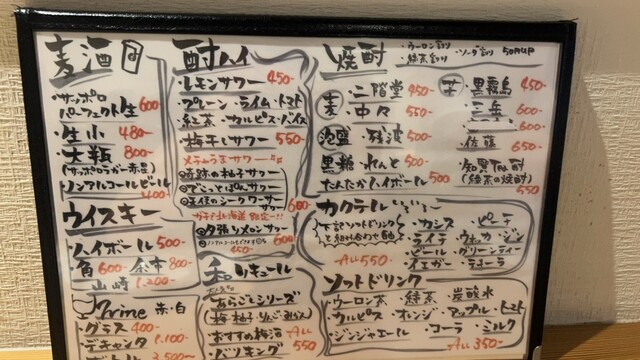 麦酒
・サッポロ
パーフェクト生 600
・生小 480-
・大瓶 800-
(サッポロラガー赤星)
・ノンアルコールビール
400-
ウイスキー
ハイボール 500-
角 600 余市 800-
山崎 1,200-
Wine 赤・白
グラス 400-
デキャンタ 1,100-
ボトル
酎ハイ
・レモンサワー 450-
・プレーン・ライム・トマト
・紅茶・カルピス・バイス
・梅干しサワー 550-
メチャうまサワー
奇跡の柚子サワー
でこっとぽんサワー
天使のシークワーサー
サワー 600-
ガチ!北海道限定!!
夕張りメロンサワー
600-
450-
和リキュール
あらごしシリーズ
(梅・柚子・りんご・みかん)
おすすめ梅酒 ALL
・バリキング 550
焼酎
・ウーロン割り ・ソーダ割り 50円UP
・緑茶割り
麦 ・二階堂 450-
・中々 550-
泡盛 ・残波 500-
黒糖 ・れんと 500-
たんたかハイボール 500
芋 ・黒霧島 450-
・三岳 600-
600-
・佐藤 650-
・知覧Tea酎
(緑茶の焼酎)
550
カクテル いろいろ
下記ソフトドリンク
と組み合わせ自由
ALL 550-
・カシス ・ピーチ
・ライチ ・ウォッカ・ジン
・ビール ・グリーンティー
・イエガー ・テキーラ
ソフトドリンク
・ウーロン茶 ・緑茶 ・炭酸水
・カルピス ・オレンジ ・アップル ・トマト
・ジンジャエール ・コーラ ・ミルク
ALL 350-